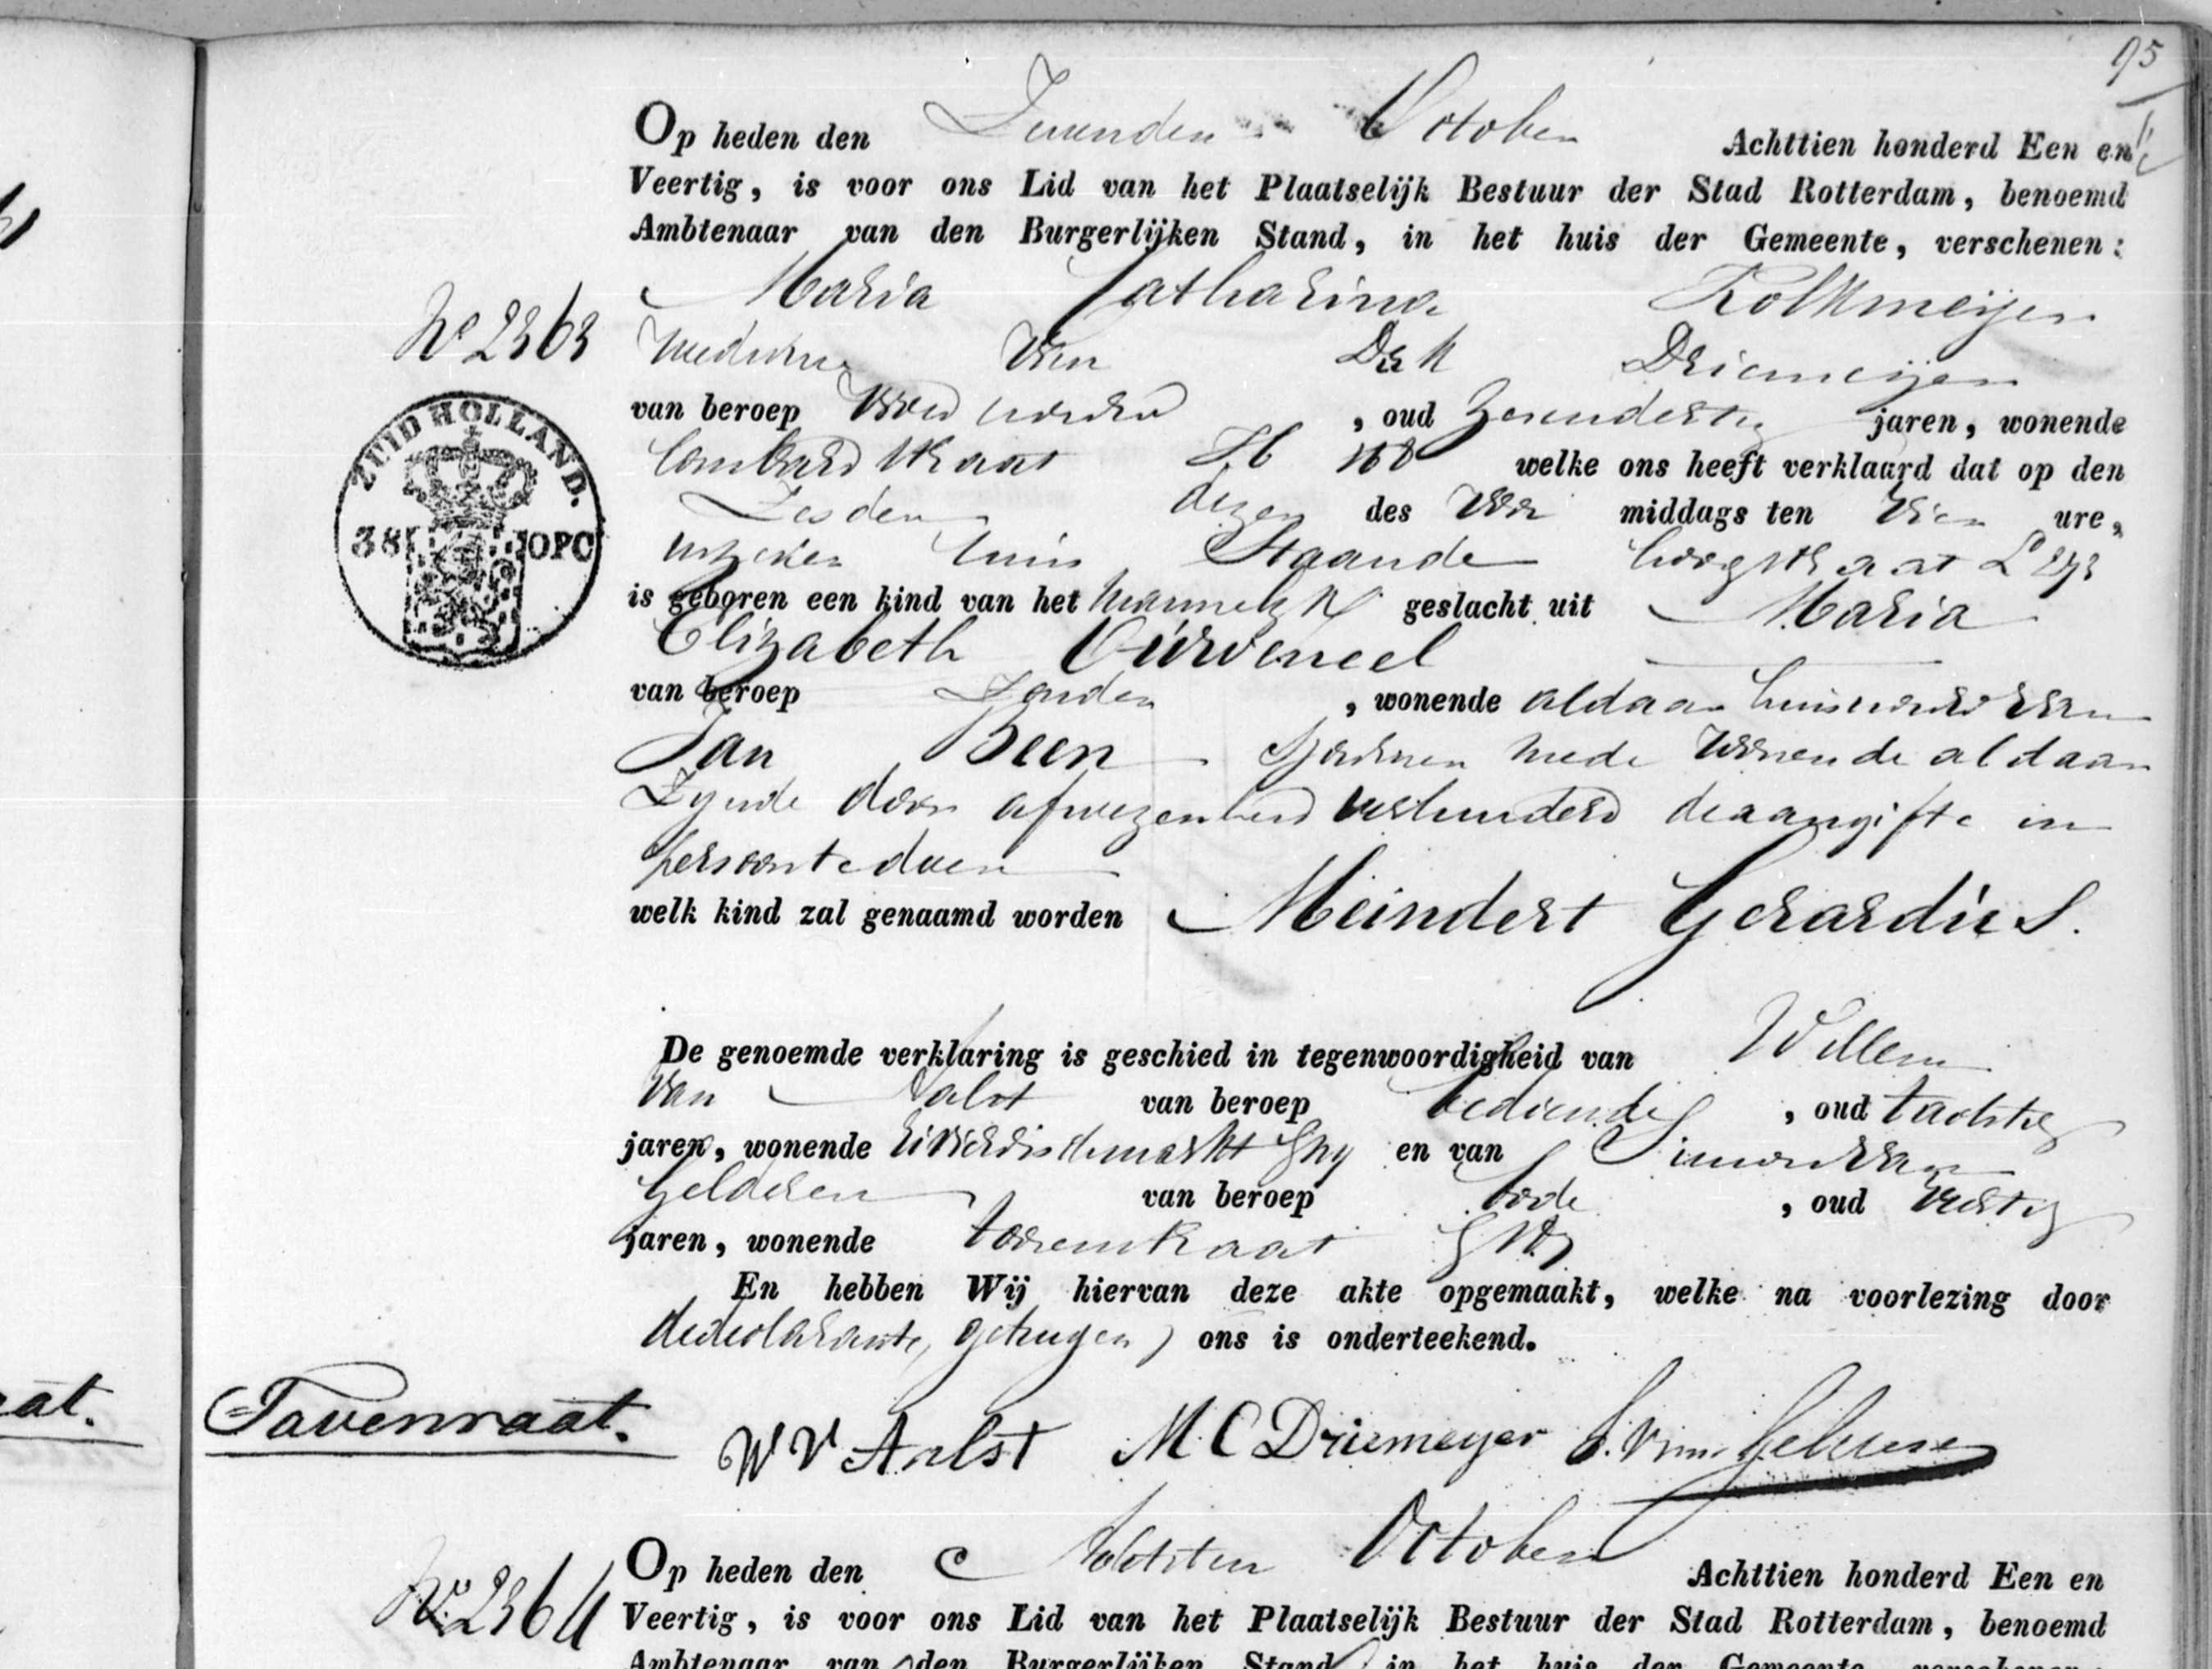 95
Op heden den Zevenden October Achttien honderd Een en
Veertig, is voor ons Lid van het Plaatselijk Bestuur der Stad Rotterdam, benoemd
Ambtenaar van den Burgerlijken Stand, in het huis der Gemeente, verschenen:
Maria Catharina Kolkmeijer
No 2363
weduwe van Dirk Driemeijer
van beroep Vroedvrouw, oud Zevendertig jaren, wonende
Lombardstraat welke ons heeft verklaard dat op den
Zesden dezer des Voor middags ten Vier ure,
in zeker huis Staande hoogstraat
is geboren een kind van het mannelijk geslacht uit Maria
Elizabeth Ouweneel
van beroep Zonder, wonende aldaar huisvrouw van
Jan Been Sjouwer mede wonende aldaar
Zynde door afwezenheid verhinderd de aangifte in
persoon te doen
welk kind zal genaamd worden Meindert Gerardus.
ZUID HOLLAND.
38 OPC
De genoemde verklaring is geschied in tegenwoordigheid van Willem
van Aalst van beroep bediende, oud tachtig
jaren, wonende en van Simon van
Gelderen van beroep bode, oud veertig
jaren, wonende Torenstraat
En hebben Wij hiervan deze akte opgemaakt, welke na voorlezing door
de declarante, getuigen, ons is onderteekend.
Tavenraat.
W V Aalst M C Driemeyer S. van Gelderen
No 2364
Op heden den Achtsten October Achttien honderd Een en
Veertig, is voor ons Lid van het Plaatselijk Bestuur der Stad Rotterdam, benoemd
Ambtenaar van den Burgerlijken Stand, in het huis der Gemeente, verschenen: